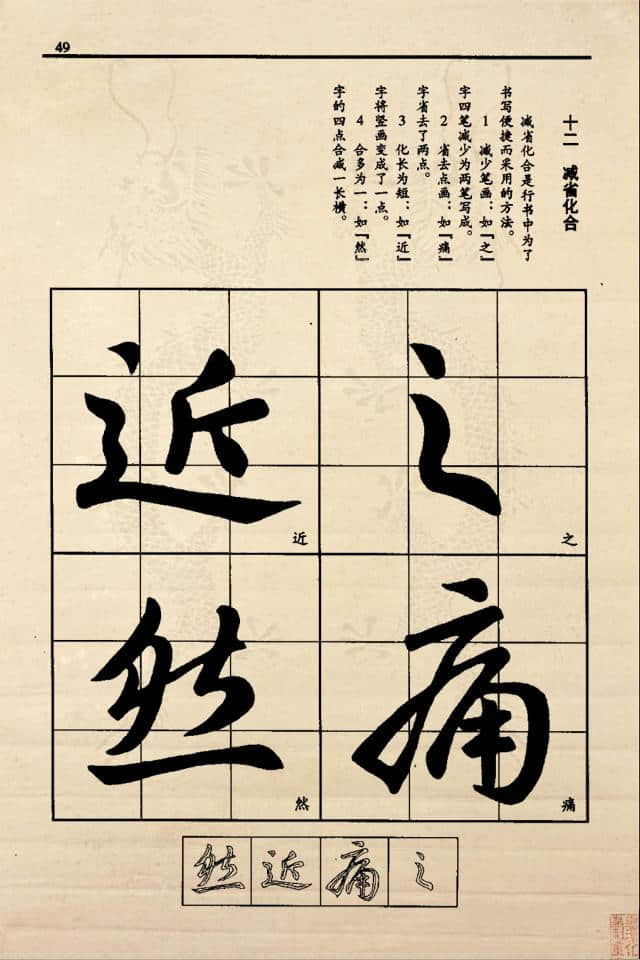 49
十二 减省化合
减省化合是行书中为了
书写便捷而采用的方法。
1 减少笔画：如『之』
字四笔减少为两笔写成。
2 省去点画：如『痛』
字省去了两点。
3 化长为短：如『近』
字将竖画变成了一点。
4 合多为一：如『然』
字的四点合减一长横。
之
之
近
近
痛
痛
然
然
然 近 痛 之